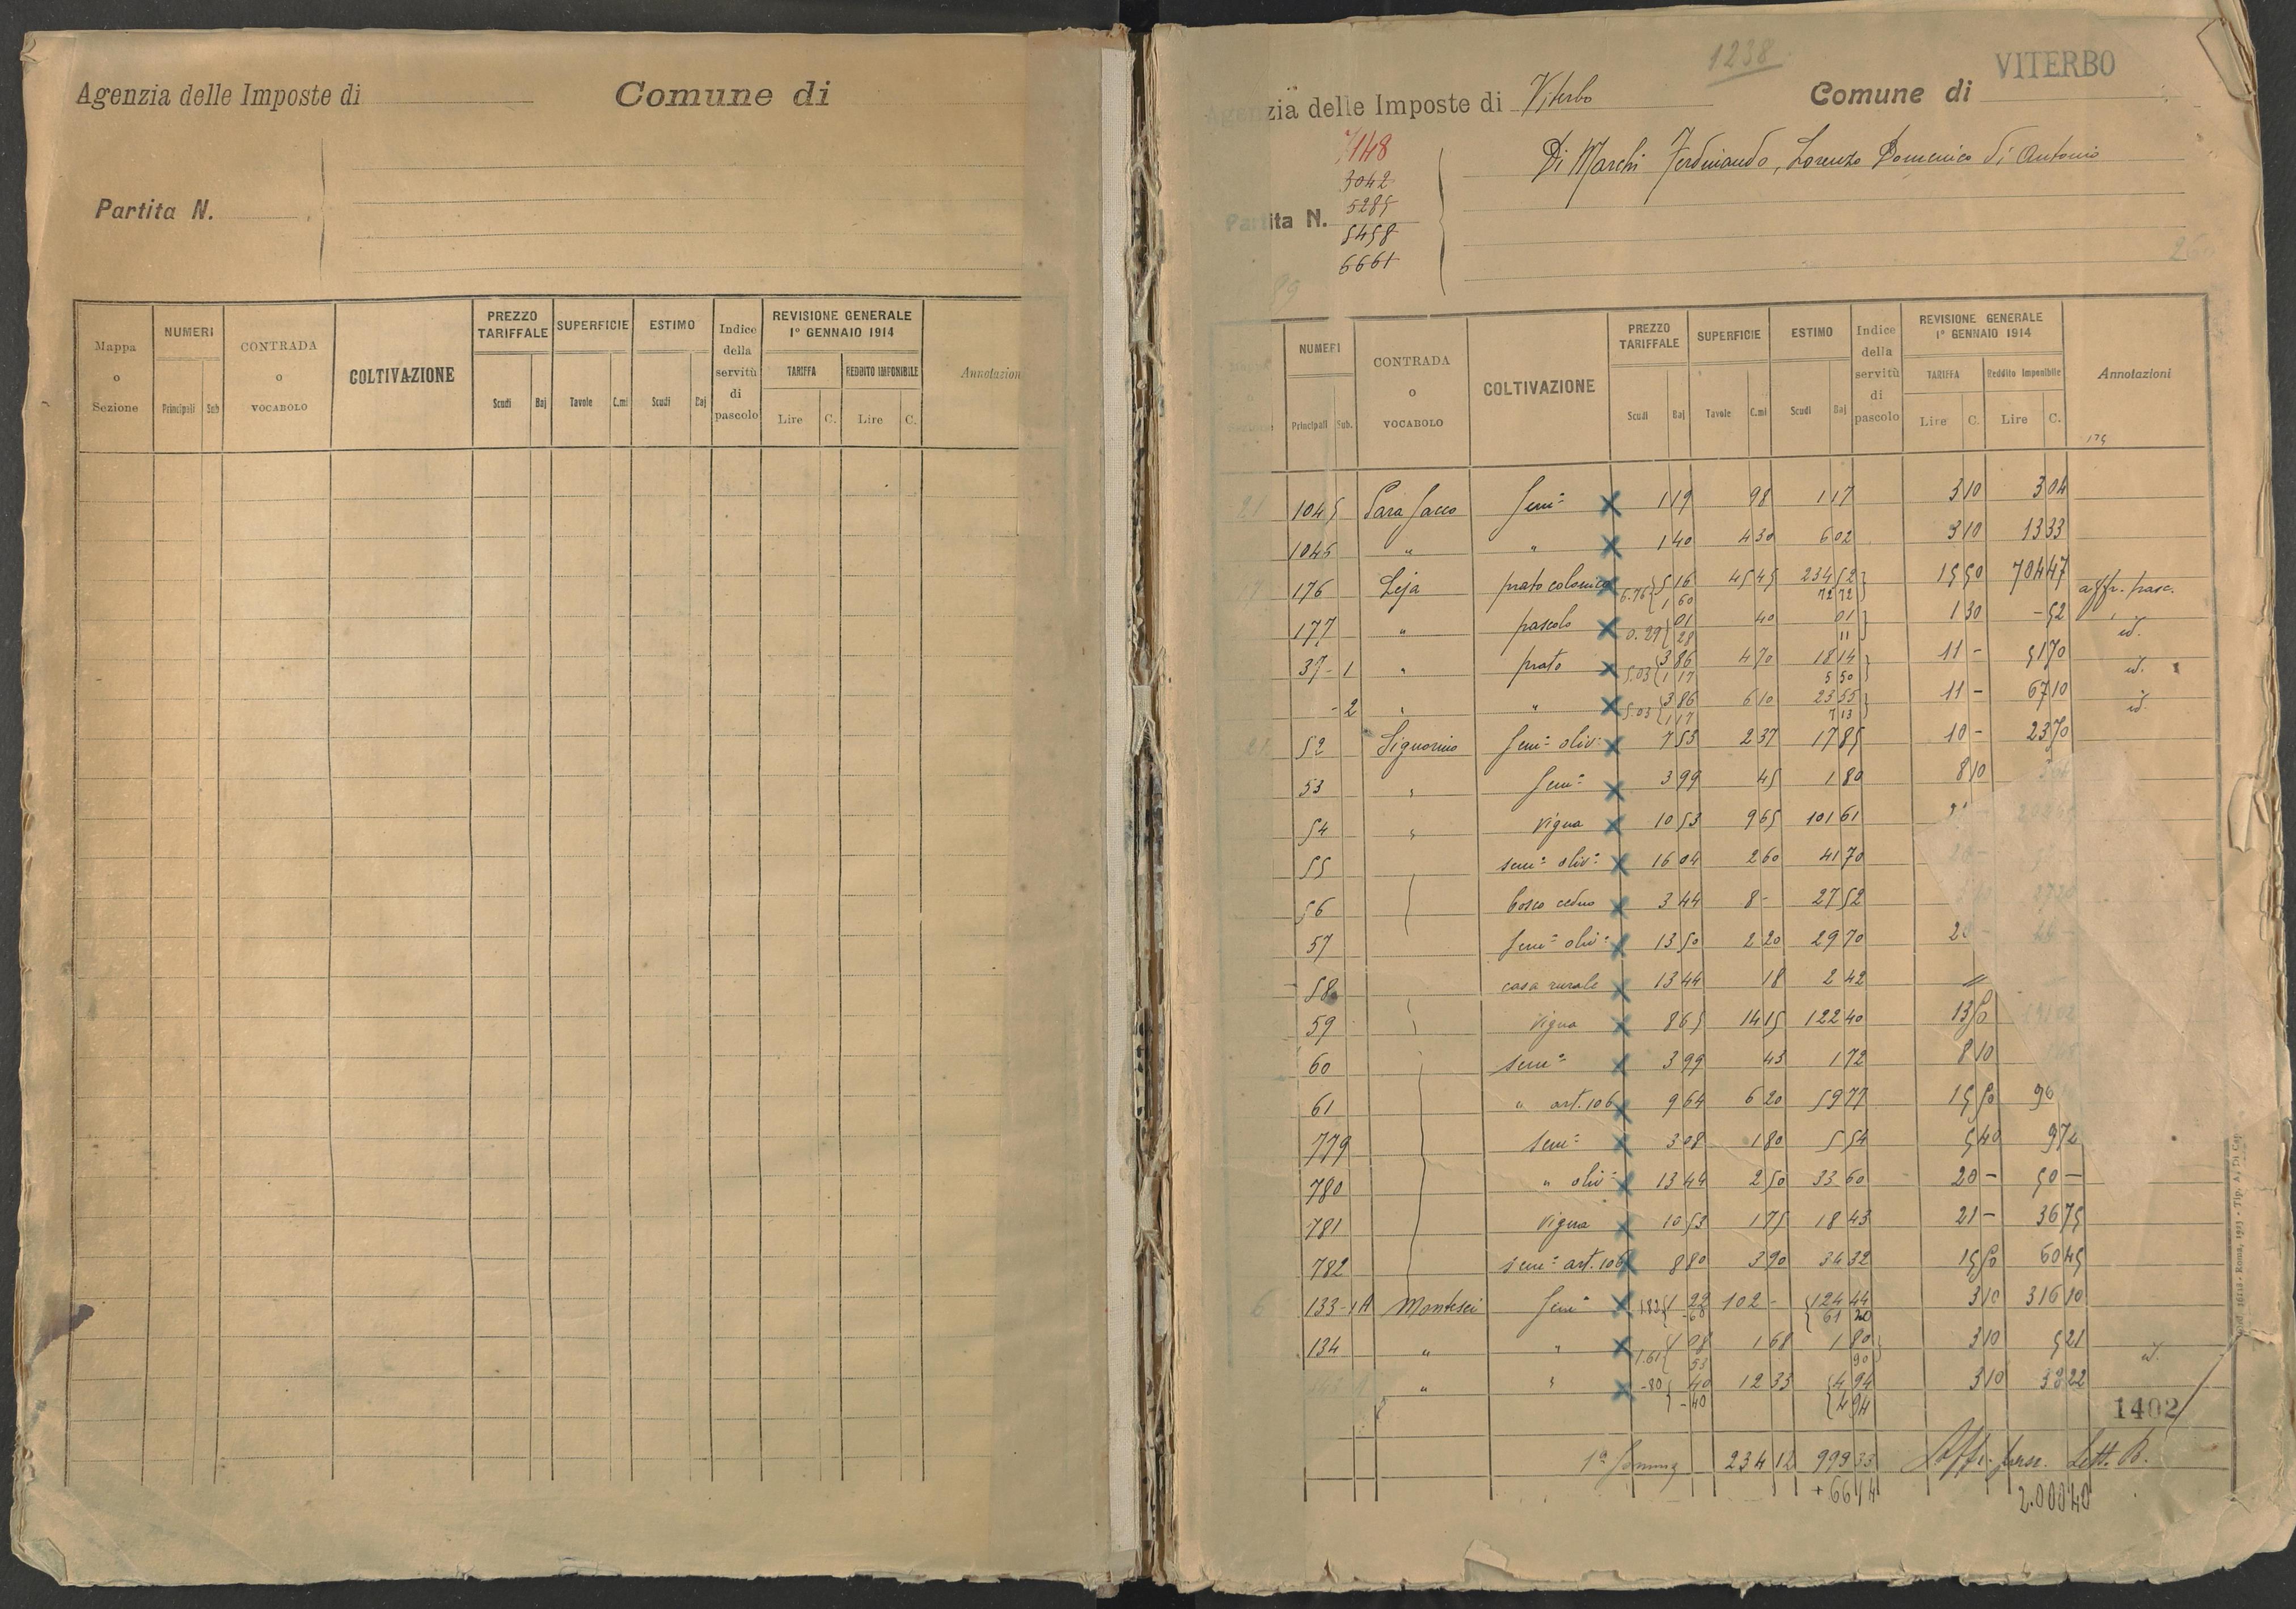 Agenzia delle Imposte di
Comune di
Partita N.
Mappa o Sezione
NUMERI
Principali Sub
CONTRADA O VOCABOLO
COLTIVAZIONE
PREZZO TARIFFALE
Scudi Baj
SUPERFICIE
Tavole C.mi
ESTIMO
Scudi Baj
Indice della servitù di pascolo
REVISIONE GENERALE 1° GENNAIO 1914
TARIFFA REDDITO IMPONIBILE
Lire C. Lire C.
Annotazion
1238
zia delle Imposte di Viterbo
Comune di VITERBO
148
3042
5285
5458
6661
Partita N.
Di Marchi Ferdinando, Lorenzo Domenico di Antonio
NUMERI
Principali Sub.
CONTRADA O VOCABOLO
COLTIVAZIONE
PREZZO TARIFFALE
Scudi Baj
SUPERFICIE
Tavole C.mi
ESTIMO
Scudi Baj
Indice della servitù di pascolo
REVISIONE GENERALE 1° GENNAIO 1914
TARIFFA Reddito Imponibile
Lire C. Lire C.
Annotazioni
175
21 1045 Para Sacco Sem° X 1 19 98 1 17 3 10 3 04
1046 " " X 1 40 4 30 6 02 3 10 13 33
176 Leja prato colonico X 6.76 { 5 16 45 45 234 52 } 15 50 704 47 affr. pasc.
1 60 72 72
177 " pascolo X 0.29 { 01 40 01 } 1 30 - 52 id.
28 11
37 - 1 " prato X 5.03 { 3 86 4 70 18 14 } 11 - 51 70 id.
1 17 5 50
- 2 " " X 5.03 { 3 86 6 10 23 55 } 11 - 67 10 id.
1 17 7 13
21 52 Signorino Sem° oliv° X 7 53 2 37 17 85 10 - 23 70
53 " Sem° X 3 99 45 1 80 8 10
54 " Vigna X 10 53 9 65 101 61
55 sem° oliv° X 16 04 2 60 41 70
56 bosco ceduo X 3 44 8 - 27 52
57 Sem° oliv° X 13 50 2 20 29 70
58 casa rurale X 13 44 18 2 42 "
59 Vigna X 8 65 14 15 122 40 13 50
60 sem° X 3 99 43 1 72 8 10
61 " art. 106 X 9 64 6 20 59 77 15 50 96
779 sem° X 3 08 1 80 5 54 5 40 9 72
780 " oliv° X 13 44 2 50 33 60 20 - 50 -
781 Vigna X 10 53 1 75 18 43 21 - 36 75
782 sem° art. 106 X 8 80 3 90 34 32 15 50 60 45
6 133 - 1A Montesei Sem° X 1.82 { 1 22 102 - { 124 44 3 10 316 10
- 60 61 20
134 " " X 1.61 { 1 08 1 68 1 80 } 3 10 5 21 id.
53 90
" " X - 80 { 40 12 33 { 4 94 3 10 38 22
- 40 4 94
1402
1a Somma 234 12 999 33 Affr. pasc. Lett. B.
+ 66 14 2.000 40